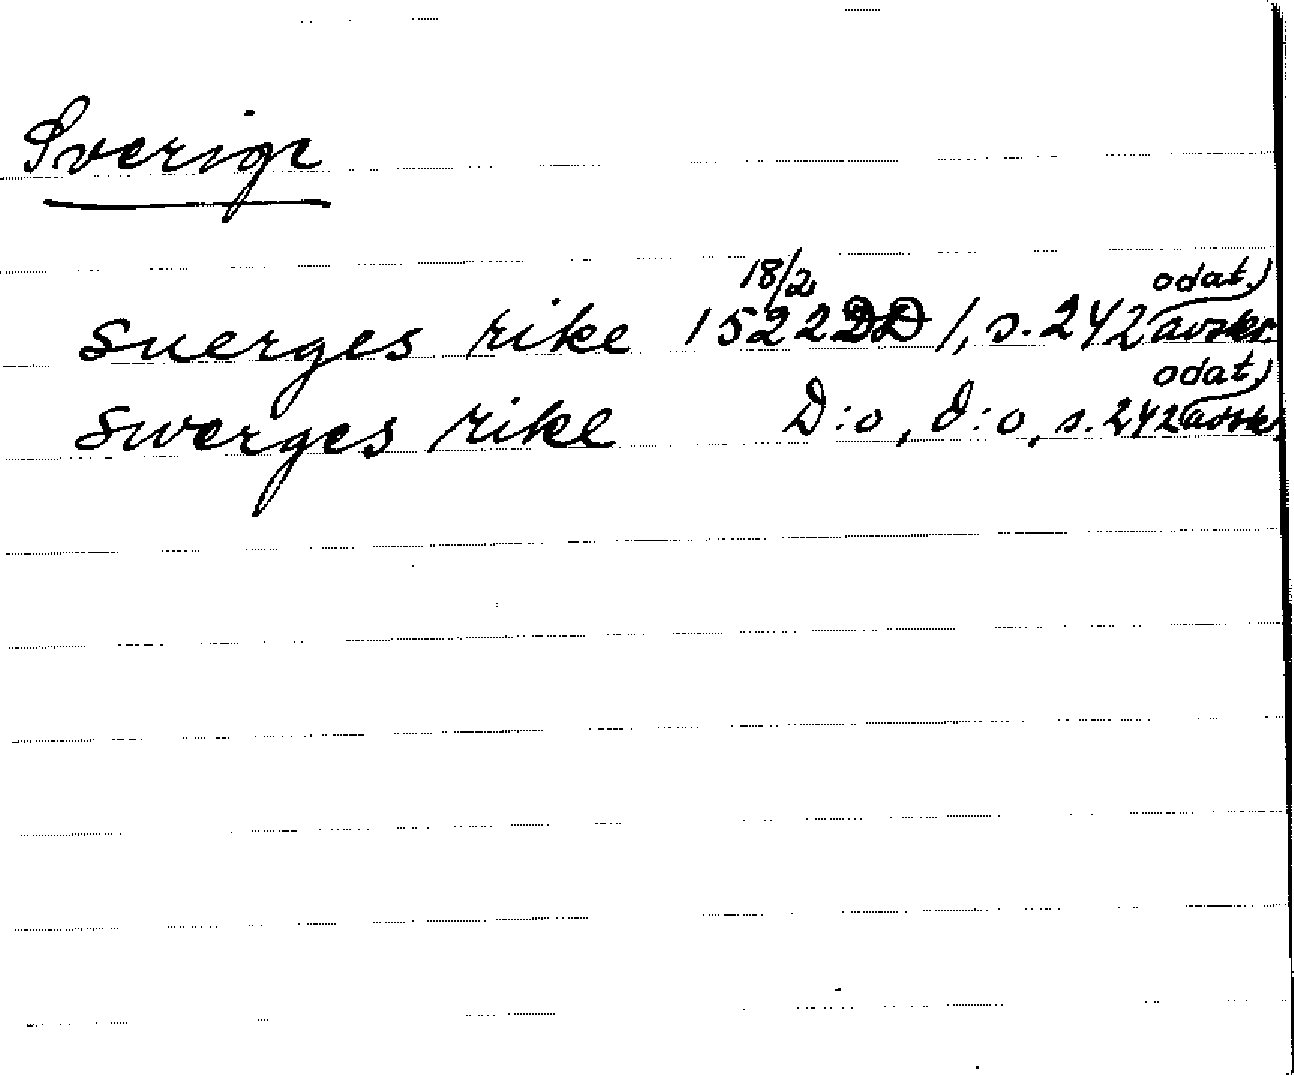 Sverige
suerges rike 18/2 1522 DD 1, s. 242 odat. avskr.
swerges rike D:o, d:o, s. 242 odat. avskr.